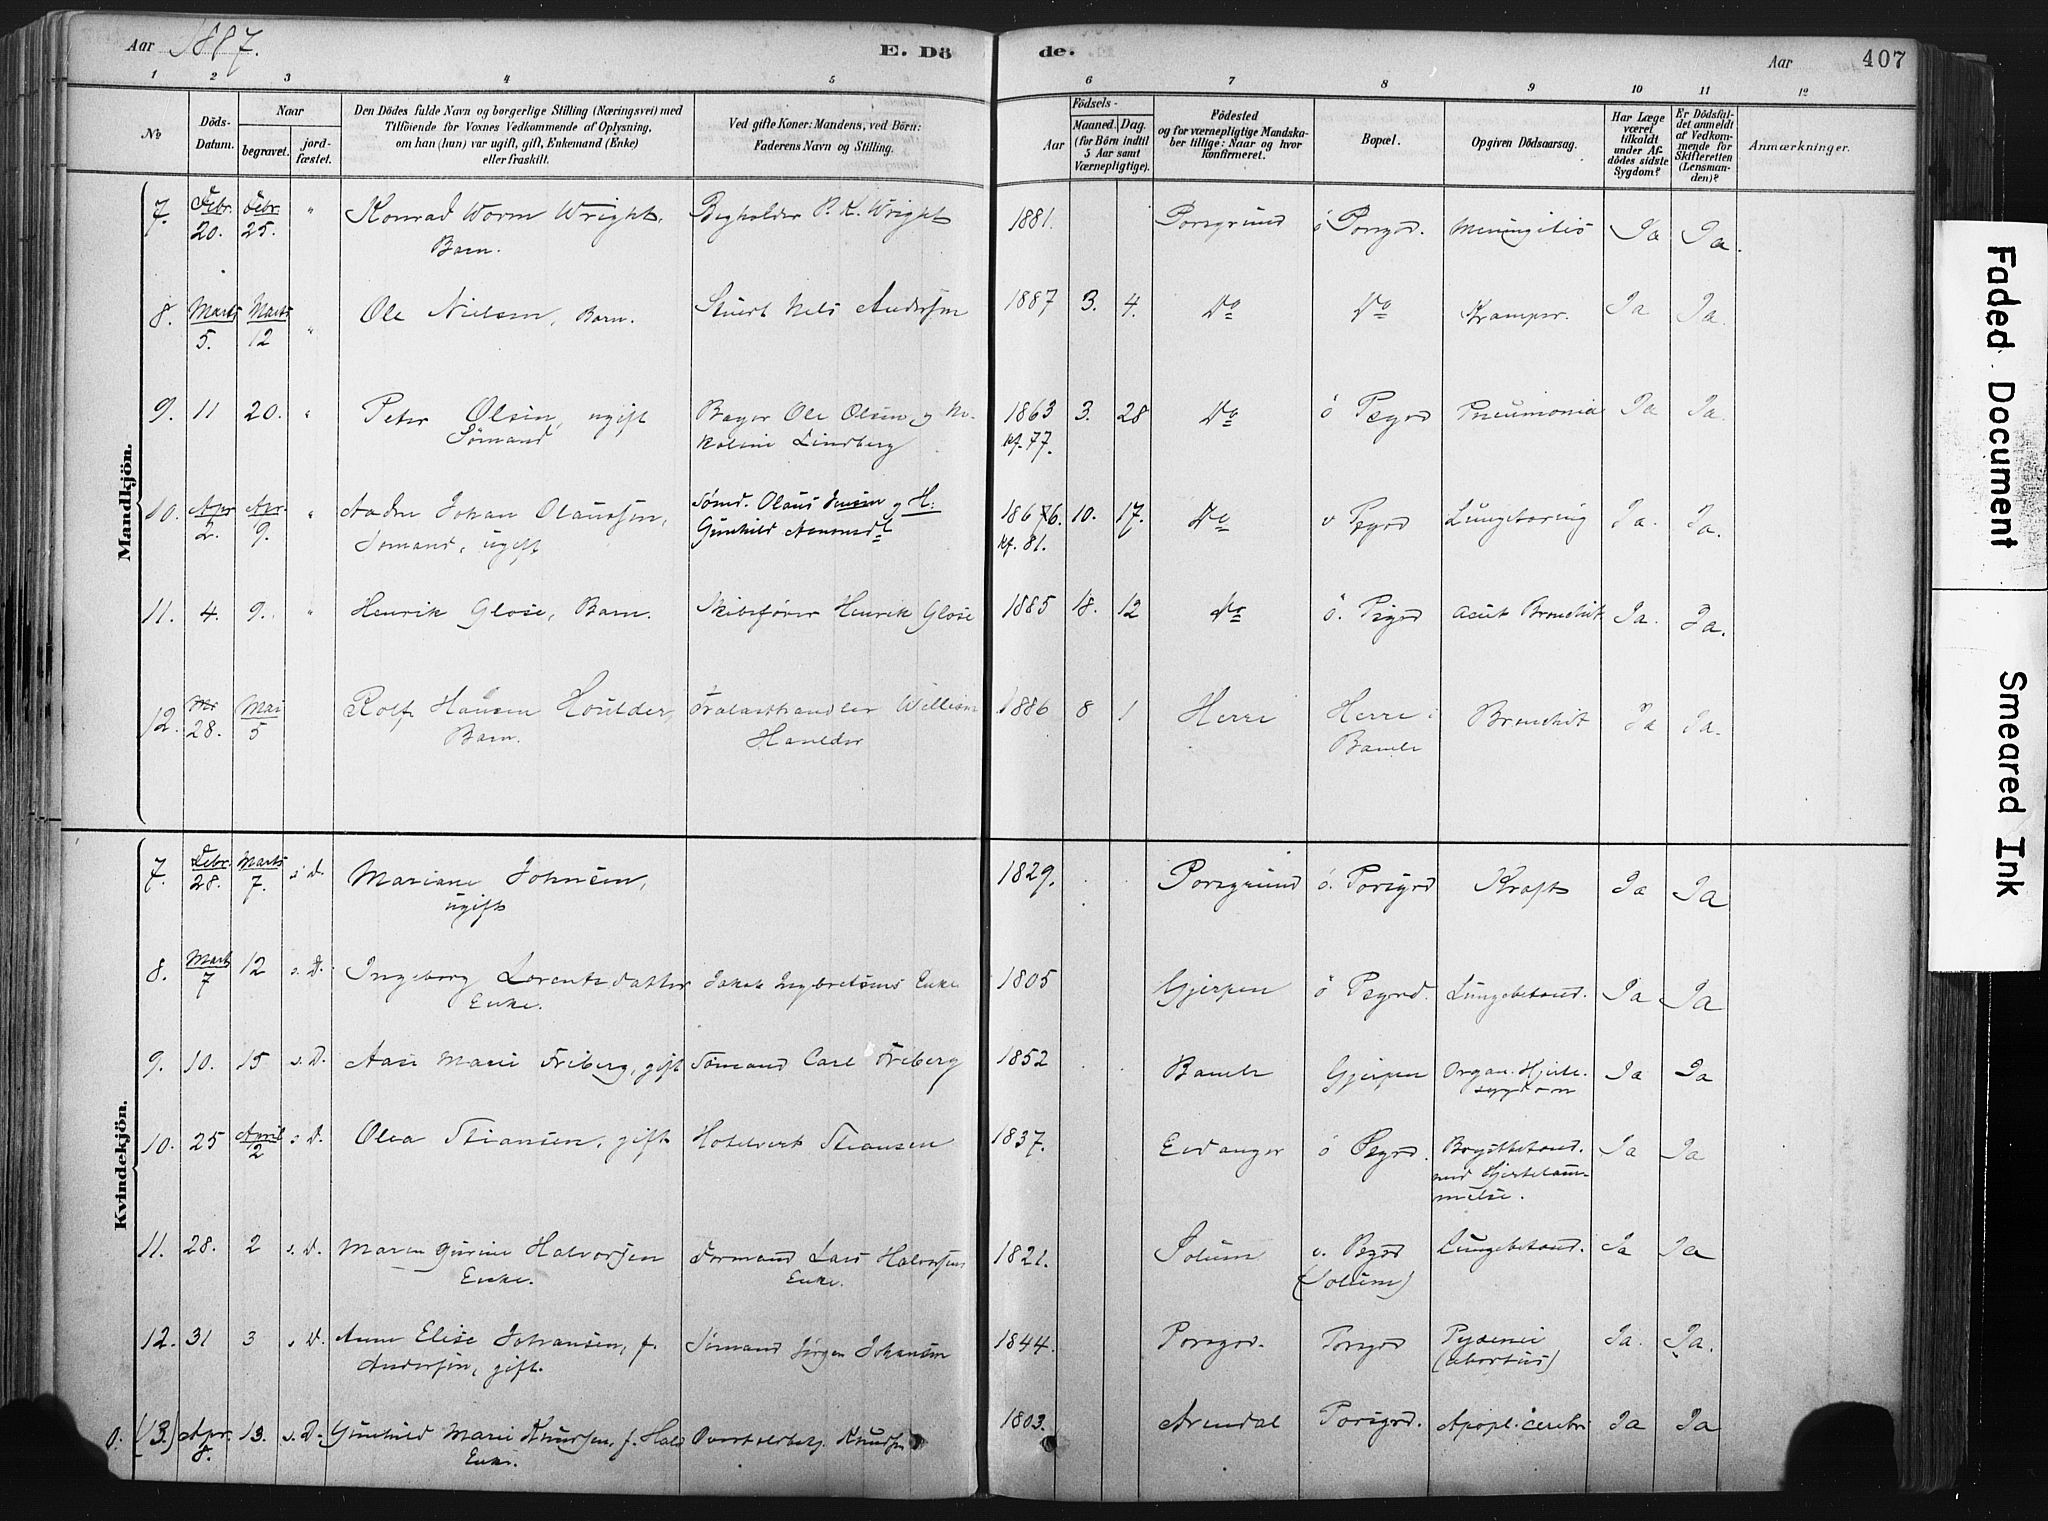 Aar 1887.
E. Dö
de.
Aar
407
1 2 3 4 5 6 7 8 9 10 11 12
No
Döds-
Datum.
Naar
begravet.
jord-
fæstet.
Den Dödes fulde Navn og borgerlige Stilling (Næringsvei) med
Tilföiende for Voxnes Vedkommende af Oplysning,
om han (hun) var ugift, gift, Enkemand (Enke)
eller fraskilt.
Ved gifte Koner: Mandens, ved Börn:
Faderens Navn og Stilling.
Födsels-
Aar
Maaned. Dag.
(for Börn indtil
5 Aar samt
Værnepligtige).
Födested
og for værnepligtige Mandska-
ber tillige: Naar og hvor
konfirmeret.
Bopæl.
Opgiven Dödsaarsag.
Har Læge
været
tilkaldt
under Af-
dödes sidste
Sygdom?
Er Dödsfal-
det anmeldt
af Vedkom-
mende for
Skifteretten
(Lensman-
den)?
Anmærkninger.
Mandkjön.
7. Febr. 20. Febr. 25. " Konrad Worm Wright, P. K. Wright 1881. Porsgrund ö Porsgrd. Meningitis Ja Ja.
Barn.
8. Marts 5. Marts 12 " Ole Nielsen, Barn. Stuert Nels Andersen 1887 3. 4. Do Do Kramper. Ja Ja.
9. 11 20. " Peter Olsen, ugift Bager Ole Olsen og Ni- 1863 3. 28 Do ö Psgrd Pneumonia Ja Ja.
Sømand koline Lindberg kf. 77.
10. Apr 2. Apr. 9. " Johan Olaussen, Sømd. Olaus Jensen og H. 10. 17. Do v Psgrd Ja. Ja.
Sømand, ugift Gunhild kf. 81.
11. 4. 9. " Henrik Glose, Barn. Skibsfører Henrik Glose 1885 18. 12 Do ö. Psgrd acut Bronchit Ja. Ja.
12. 28. Mai 5 Rolf Hansen Houlder, William 1886 8 1 Herre Herre i Bronchit Ja Ja.
Barn. Houlder Bamle
Kvindekjön.
7. Febr. 28. Marts 7. s. D. Mariane Johnsen, 1829. Porsgrund ö. Porsgrd Kraft Ja Ja
ugift
8. Marts 7 12 s. D. Ingeborg Lorentsdatter Jakob Ingbretsens Enke 1805 Gjerpen ö Psgrd. Lungebetænd. Ja Ja
Enke.
9. 10. 15 s. D. Aase Marie Friberg, gift Sømand Carl Friberg 1852 Bamle Gjerpen Organ. Hjerte- Ja Ja
sygdom
10. 25 April 2 s. D. Olea Stiansen, gift Hotelvert Stiansen 1837. Eidanger ö Psgrd. Brystbetænd. Ja Ja
med Hjertelam-
melse.
11. 28. 2 s. D. Maren Gurine Halvorsen Formand Lars Halvorsens 1821. Solum v. Psgrd Lungebetænd. Ja Ja
Enke. Enke. (Solum)
12. 31 3 s. D. Anne Elise Johansen, f. Sømand Jørgen Johansen 1844. Porsgrd. Porsgrd Pyæmie Ja. Ja.
Andersen, gift. (abortus)
(13.) Apr. 8. 13. s. D. Gunhild Marie Knudsen, f. Hals Knudsen 1803. Arendal Porsgrd. Apopl. cerebri Ja Ja
Enke.
Faded Document
Smeared Ink